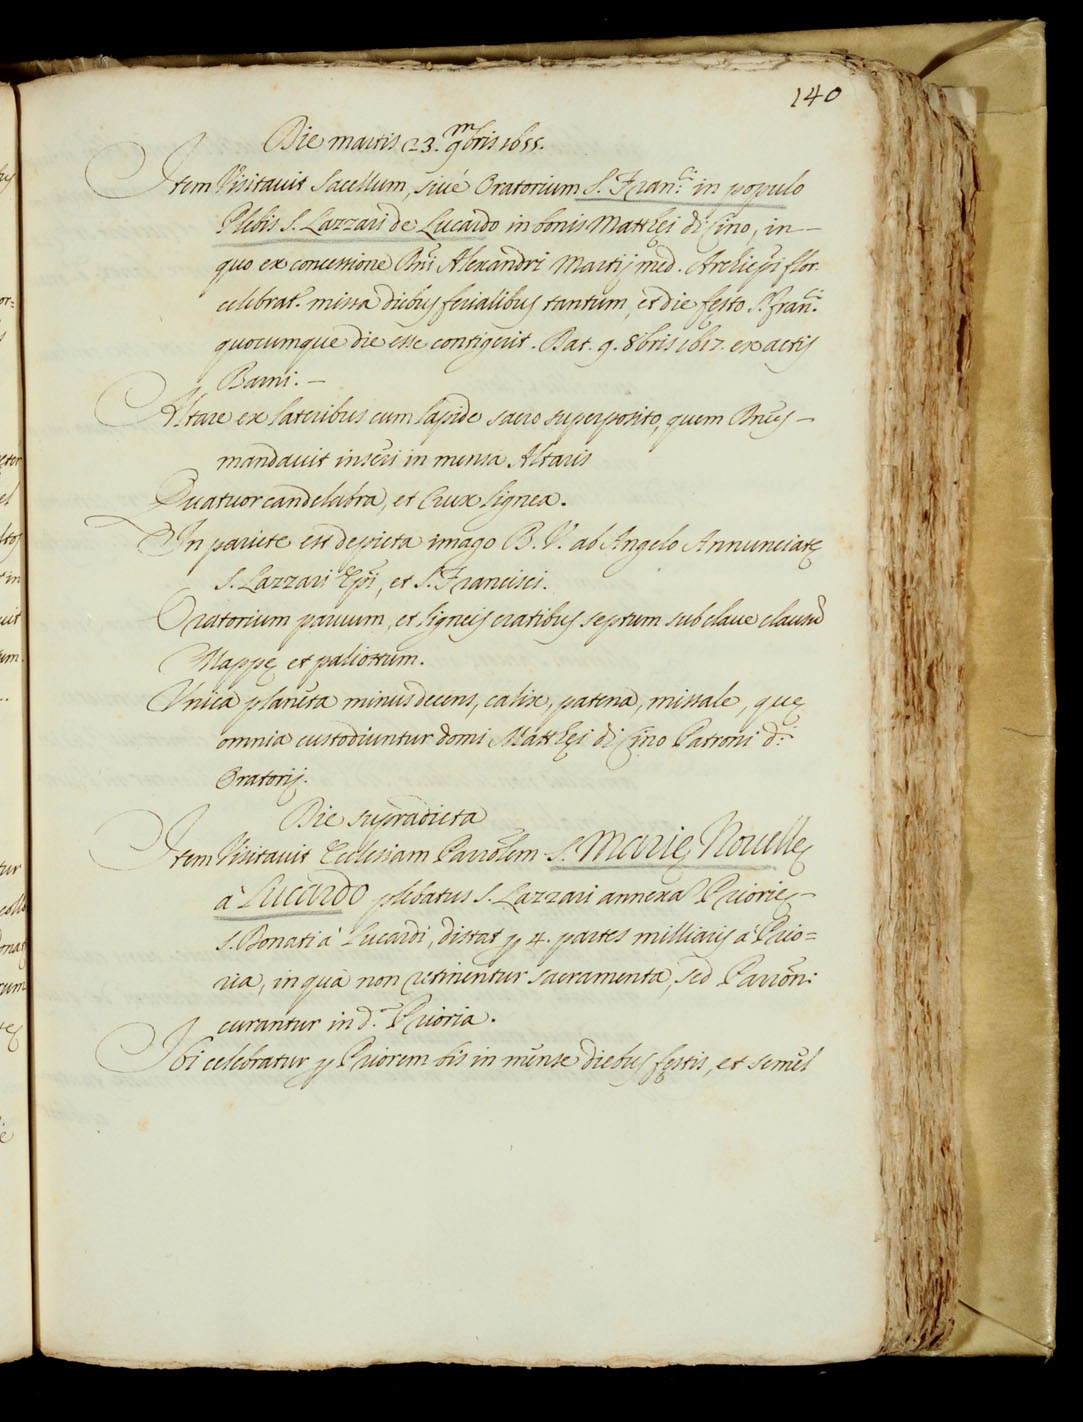 140
Die martis 23. 9mbris 1655.
Item Visitavit Sacellum, sivé Oratorium S. Fran.ci in populo
Plebis S. Lazzari de Lucardo in bonis Matthęi di Cino, in -
quo ex concessione Illmi Alexandri Martij med. Archiepi flor.
celebrat.r missa diebus ferialibus tantum, et die festo S. Fran.ci
quocumque die esse contigerit. Dat. 9. 8bris 1617. ex actis
Barni. -
Altare ex lateribus cum lapide sacro superposito, quem -
mandavit inseri in mensa Altaris
Quatuor candelabra, et Crux lignea.
In pariete est depicta imago B. V. ab Angelo Annunciatę
S. Lazzari Epi, et S. Francisci.
Oratorium parvum, et ligneis cratibus septum sub clave
Mappę et paliottum.
Unica planeta minus decens, calix, patena, missale, quę
omnia custodiuntur domi Matthęi di Cino Patroni d.i
Oratorij.
Die supradicta
Item Visitavit Ecclesiam Parrolem S. Marię Novellę
à Lucardo plebatus S. Lazzari annexa Priorię -
S. Donati à Lucardi, distat p 4. partes milliarij a Prio=
ria, in qua non retinentur sacramenta, sed Parron:
curantur in d.a Prioria.
Ibi celebratur p Priorem bis in mense diebus festis, et semel